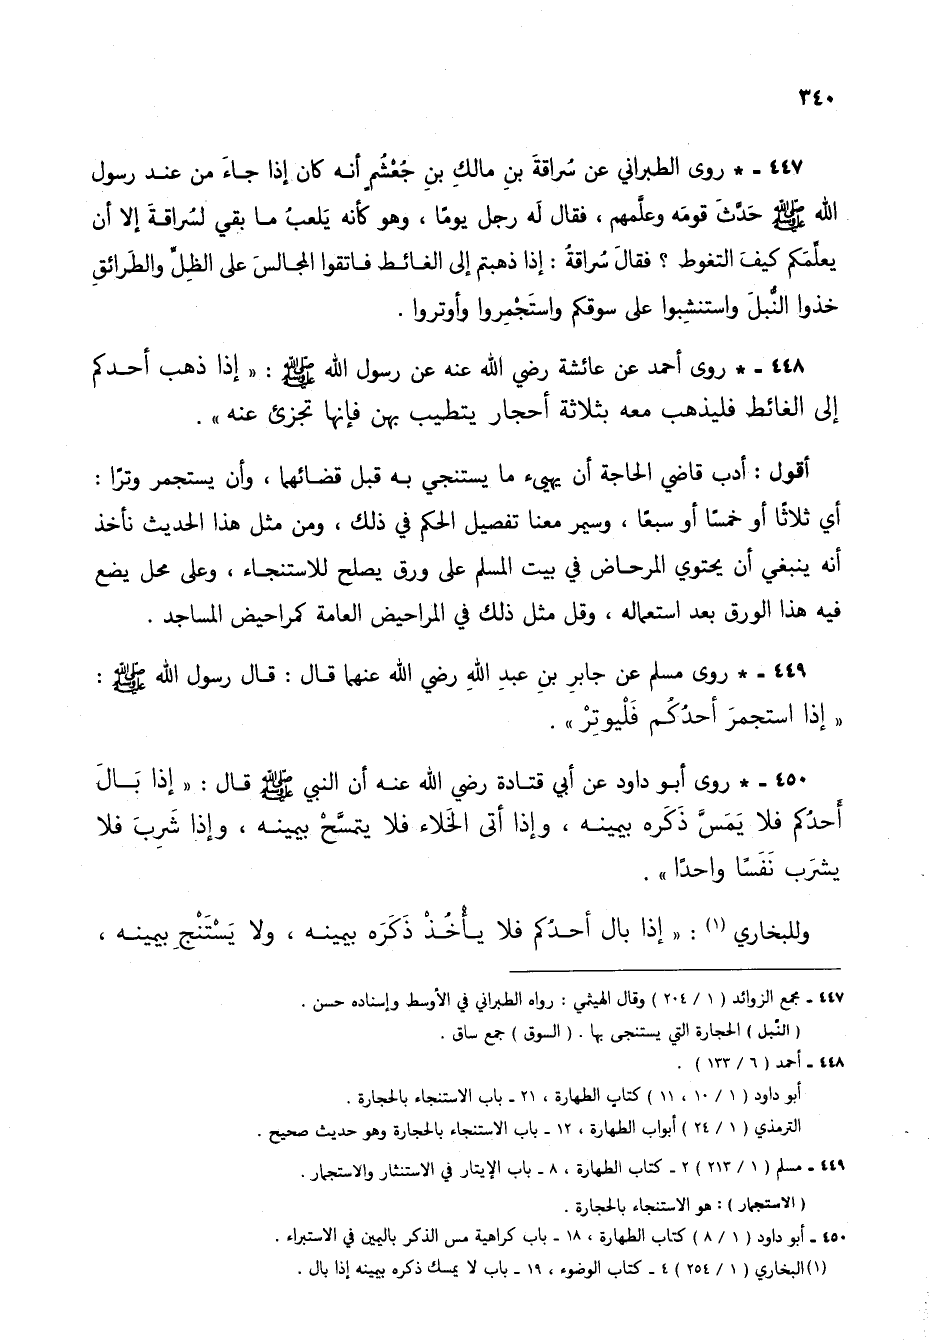 ٣٤٠
٤٤٧ ـ * روى الطبراني عن سُراقةَ بنِ مالكِ بنِ جُعْشُمٍ أنه كان إذا جاءَ من عند رسول
الله ﷺ حَدَّثَ قومَه وعلَّمهم ، فقال لَه رجل يومًا ، وهو كأنه يَلعبُ ما بقي لسُراقةَ إلا أن
يعلِّمَكم كيفَ التغوط ؟ فقالَ سُراقةُ : إذا ذهبتم إلى الغائط فاتقوا المجالسَ على الظلِّ والطَرائقِ
خذوا النُّبلَ واستنشِبوا على سوقكم واستَجْمِروا وأوتروا .
٤٤٨ ـ * روى أحمد عن عائشة رضي الله عنه عن رسول الله ﷺ : « إذا ذهب أحدكم
إلى الغائط فليذهب معه بثلاثة أحجار يتطيب بهن فإنها تجزئ عنه » .
أقول : أدب قاضي الحاجة أن يهيىء ما يستنجي به قبل قضائها ، وأن يستجمر وترًا :
أي ثلاثًا أو خمسًا أو سبعًا ، وسيمر معنا تفصيل الحكم في ذلك ، ومن مثل هذا الحديث نأخذ
أنه ينبغي أن يحتوي المرحاض في بيت المسلم على ورق يصلح للاستنجاء ، وعلى محل يضع
فيه هذا الورق بعد استعماله ، وقل مثل ذلك في المراحيض العامة كمراحيض المساجد .
٤٤٩ ـ * روى مسلم عن جابرِ بنِ عبدِ اللهِ رضي الله عنهما قال : قال رسول الله ﷺ :
« إذا استجمرَ أحدُكُم فَلْيوتِرْ » .
٤٥٠ ـ * روى أبو داود عن أبي قتادة رضي الله عنه أن النبي ﷺ قال : « إذا بَالَ
أَحدُكم فلا يَمَسَّ ذَكَره بيمينه ، وإذا أتى الخَلاء فلا يتمسَّحْ بيمينه ، وإذا شَرِبَ فلا
يشرَب نَفَسًا واحدًا » .
وللبخاري (١) : « إذا بال أحدُكم فلا يأْخُذْ ذَكَرَه بيمينه ، ولا يَسْتَنْجِ بيمينه ،
٤٤٧ ـ مجمع الزوائد ( ١ / ٢٠٤ ) وقال الهيثمي : رواه الطبراني في الأوسط وإسناده حسن .
( النُّبل ) الحجارة التي يستنجى بها . ( السوق ) جمع ساق .
٤٤٨ ـ أحمد ( ٦ / ١٣٣ ) .
أبو داود ( ١ / ١٠ ، ١١ ) كتاب الطهارة ، ٢١ ـ باب الاستنجاء بالحجارة .
الترمذي ( ١ / ٢٤ ) أبواب الطهارة ، ١٢ ـ باب الاستنجاء بالحجارة وهو حديث صحيح .
٤٤٩ ـ مسلم ( ١ / ٢١٣ ) ٢ ـ كتاب الطهارة ، ٨ ـ باب الإيتار في الاستنثار والاستجمار .
( الاستجمار ) : هو الاستنجاء بالحجارة .
٤٥٠ ـ أبو داود ( ١ / ٨ ) كتاب الطهارة ، ١٨ ـ باب كراهية مس الذكر باليمين في الاستبراء .
(١) البخاري ( ١ / ٢٥٤ ) ٤ ـ كتاب الوضوء ، ١٩ ـ باب لا يمسك ذكره بيمينه إذا بال .